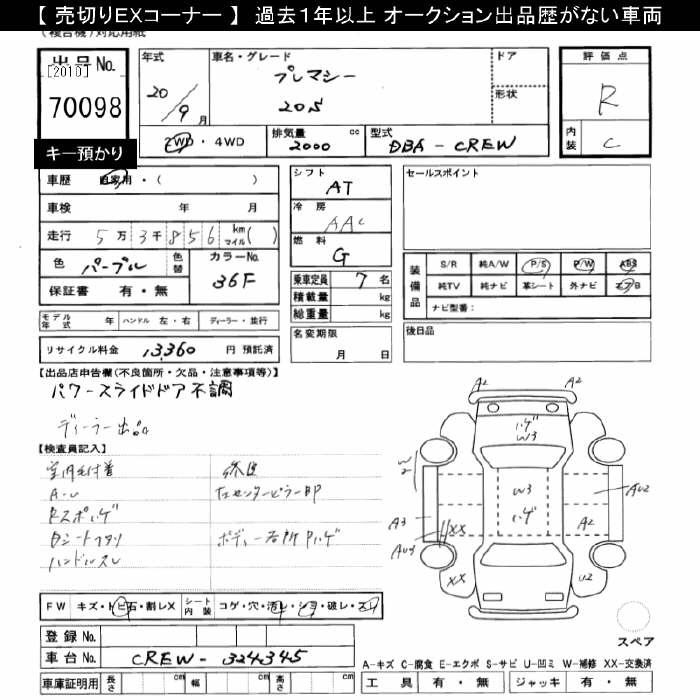 【 売切りEXコーナー 】 過去1年以上 オークション出品歴がない車両
(複合機)対応用紙
出品No.
[2010]
70098
キー預かり
年式
20／9月
車名・グレード
プレマシー
20S
ドア
形状
2WD・4WD
排気量 cc
2000
型式
DBA - CREW
評価点
R
内装
C
車歴 自家用・( )
車検 年 月
走行 5万3千856 km マイル( )
色 パープル 色替
カラーNo.
36F
保証書 有・無
シフト
AT
冷房
AAC
燃料
G
乗車定員 7名
積載量 kg
総重量 kg
セールスポイント
装備品
S/R 純A/W P/S P/W ABS
純TV 純ナビ 革シート 外ナビ エアB
ナビ型番：
モデル年式 年 ハンドル 左・右 ディーラー・並行
名変期限
月 日
後日品
リサイクル料金 13,360 円 預託済
【出品店申告欄(不良箇所・欠品・注意事項等)】
パワースライドドア不調
ディーラー出品
【検査員記入】
A-U
左センターピラー部
ハンドルスレ
A2 A2
ハゲ
W3
W2
W3
ハゲ
AU2
A3
A2
AU3
XX
XX
U2
FW キズ・トビ石・割レX シート内装 コゲ・穴・汚レ・シミ・破レ・スレ
登録No.
車台No. CREW-324345
車庫証明用 長さ cm 幅 cm 高さ cm
スペア
A-キズ C-腐食 E-エクボ S-サビ U-凹ミ W-補修 XX-交換済
工具 有・無 ジャッキ 有・無